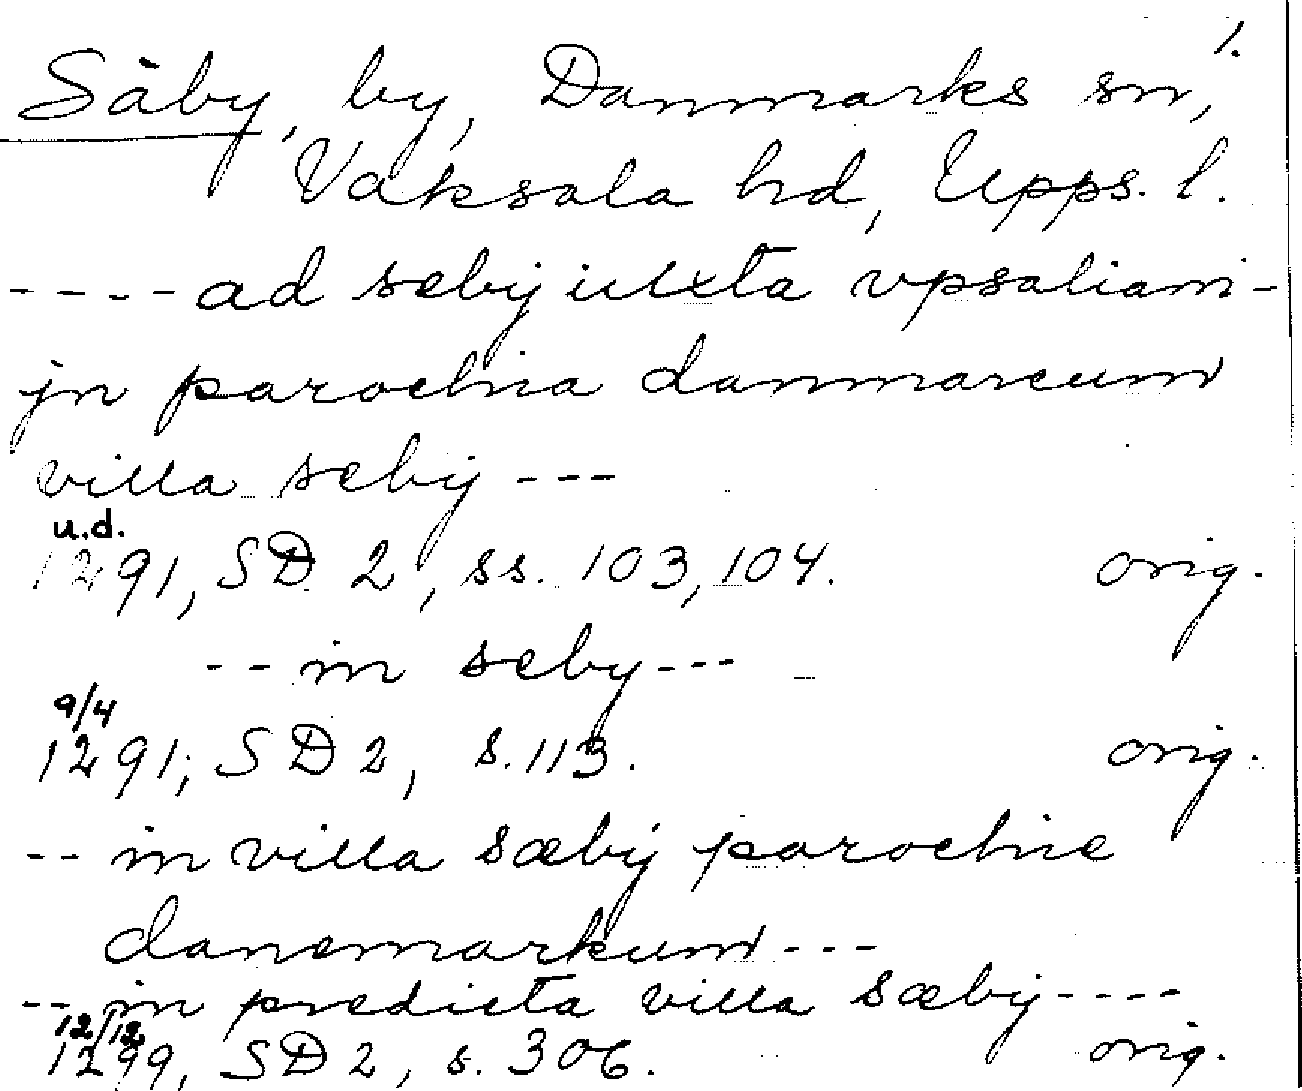 1.
Säby, by, Danmarks sn,
Vaksala hd, Upps. l.
---- ad seby iuxta vpsaliam -
jn parochia danmarcum
villa seby ---
u.d.
1291, SD 2, ss. 103, 104. orig.
-- in seby ---
9/4
1291, SD 2, s. 113. orig.
-- in villa sæby parochie
danemarkum ---
-- in predicta villa sæby ----
12/12
1299, SD 2, s. 306. orig.